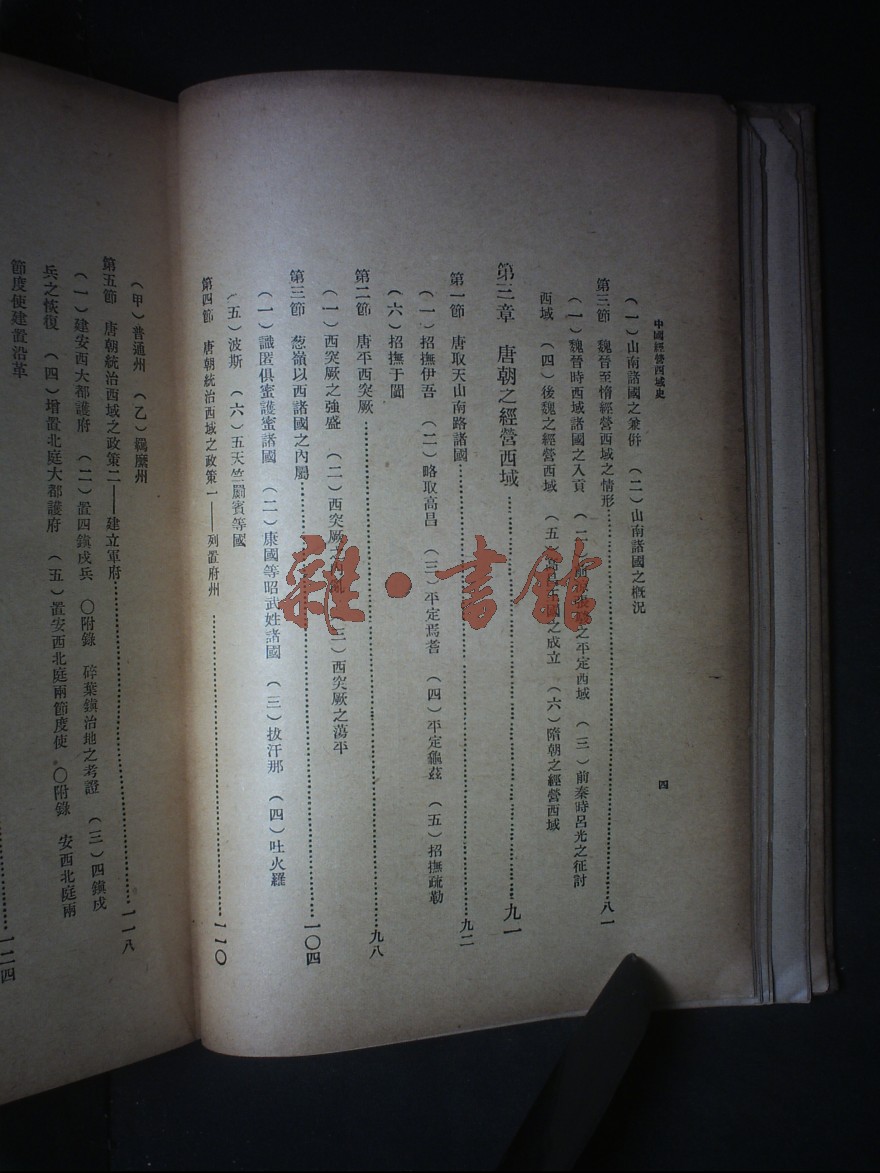 中國經營西域史
四
（一）山南諸國之兼併　（二）山南諸國之概況
第三節　魏晉至惰經營西域之情形………八一
（一）魏晉時西域諸國之入貢　（二）前之平定西域　（三）前秦時呂光之征討
西域　（四）後魏之經營西域　（五）國之成立　（六）隋朝之經營西域
第三章　唐朝之經營西域………九一
第一節　唐取天山南路諸國………九二
（一）招撫伊吾　（二）略取高昌　（三）平定焉耆　（四）平定龜茲　（五）招撫疏勒
（六）招撫于闐
第二節　唐平西突厥………九八
（一）西突厥之強盛　（二）西突厥之　（三）西突厥之蕩平
第三節　葱嶺以西諸國之內屬………一〇四
（一）識匿俱蜜護蜜諸國　（二）康國等昭武姓諸國　（三）拔汗那　（四）吐火羅
（五）波斯　（六）五天竺罽賓等國
第四節　唐朝統治西域之政策一——列置府州………一一〇
（甲）普通州　（乙）羈縻州
第五節　唐朝統治西域之政策二——建立軍府………一一八
（一）建安西大都護府　（二）置四鎮戍兵　〇附錄　碎葉鎮治地之考證　（三）四鎮戍
兵之恢復　（四）增置北庭大都護府　（五）置安西北庭兩節度使　〇附錄　安西北庭兩
節度使建置沿革
………一二四
雜・書館